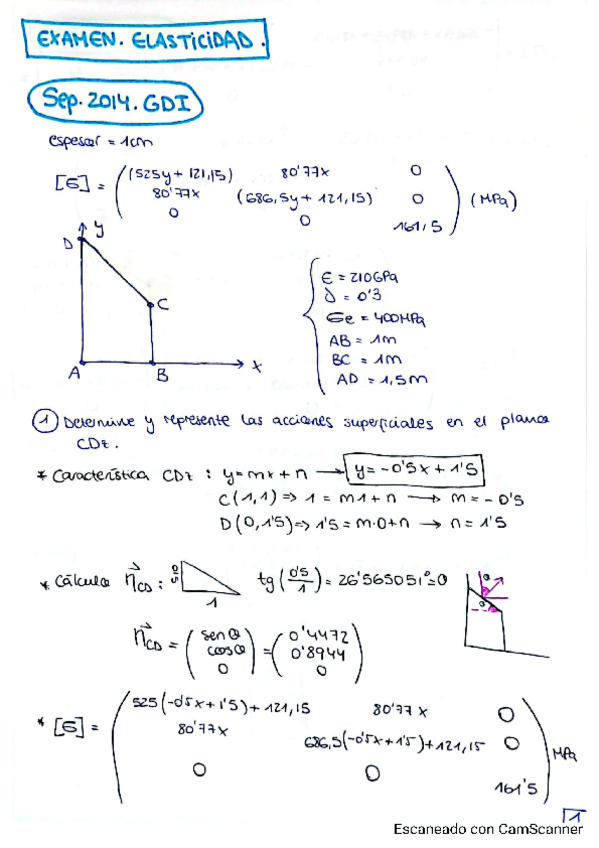 EXAMEN. ELASTICIDAD.
Sep. 2014. GDI
espesor = 1cm
[σ] = ( (525y + 121,15) 80'77x 0
80'77x (686,5y + 121,15) 0
0 0 161,5 ) (MPa)
D y
C
A B x
E = 210GPa
ν = 0'3
σe = 400MPa
AB = 1m
BC = 1m
AD = 1,5m
① Determine y represente las acciones superficiales en el plano
CDz.
* Característica CDz : y = mx + n → y = -0'5x + 1'5
C(1,1) => 1 = m1 + n → m = -0'5
D(0,1'5) => 1'5 = m·0+n → n = 1'5
* Cálculo n⃗CD : 0'5 1 tg (0'5/1) = 26'565051° = θ
θ
θ
n⃗CD = ( sen θ cos θ 0 ) = ( 0'4472 0'8944 0 )
* [σ] = ( 525(-0'5x + 1'5) + 121,15 80'77x 0
80'77x 686,5(-0'5x + 1'5) + 121,15 0
0 0 161'5 ) MPa
1
Escaneado con CamScanner